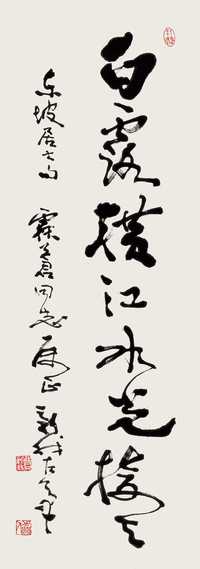 白露横江水光接天
东坡居士句 霖苍同志属正